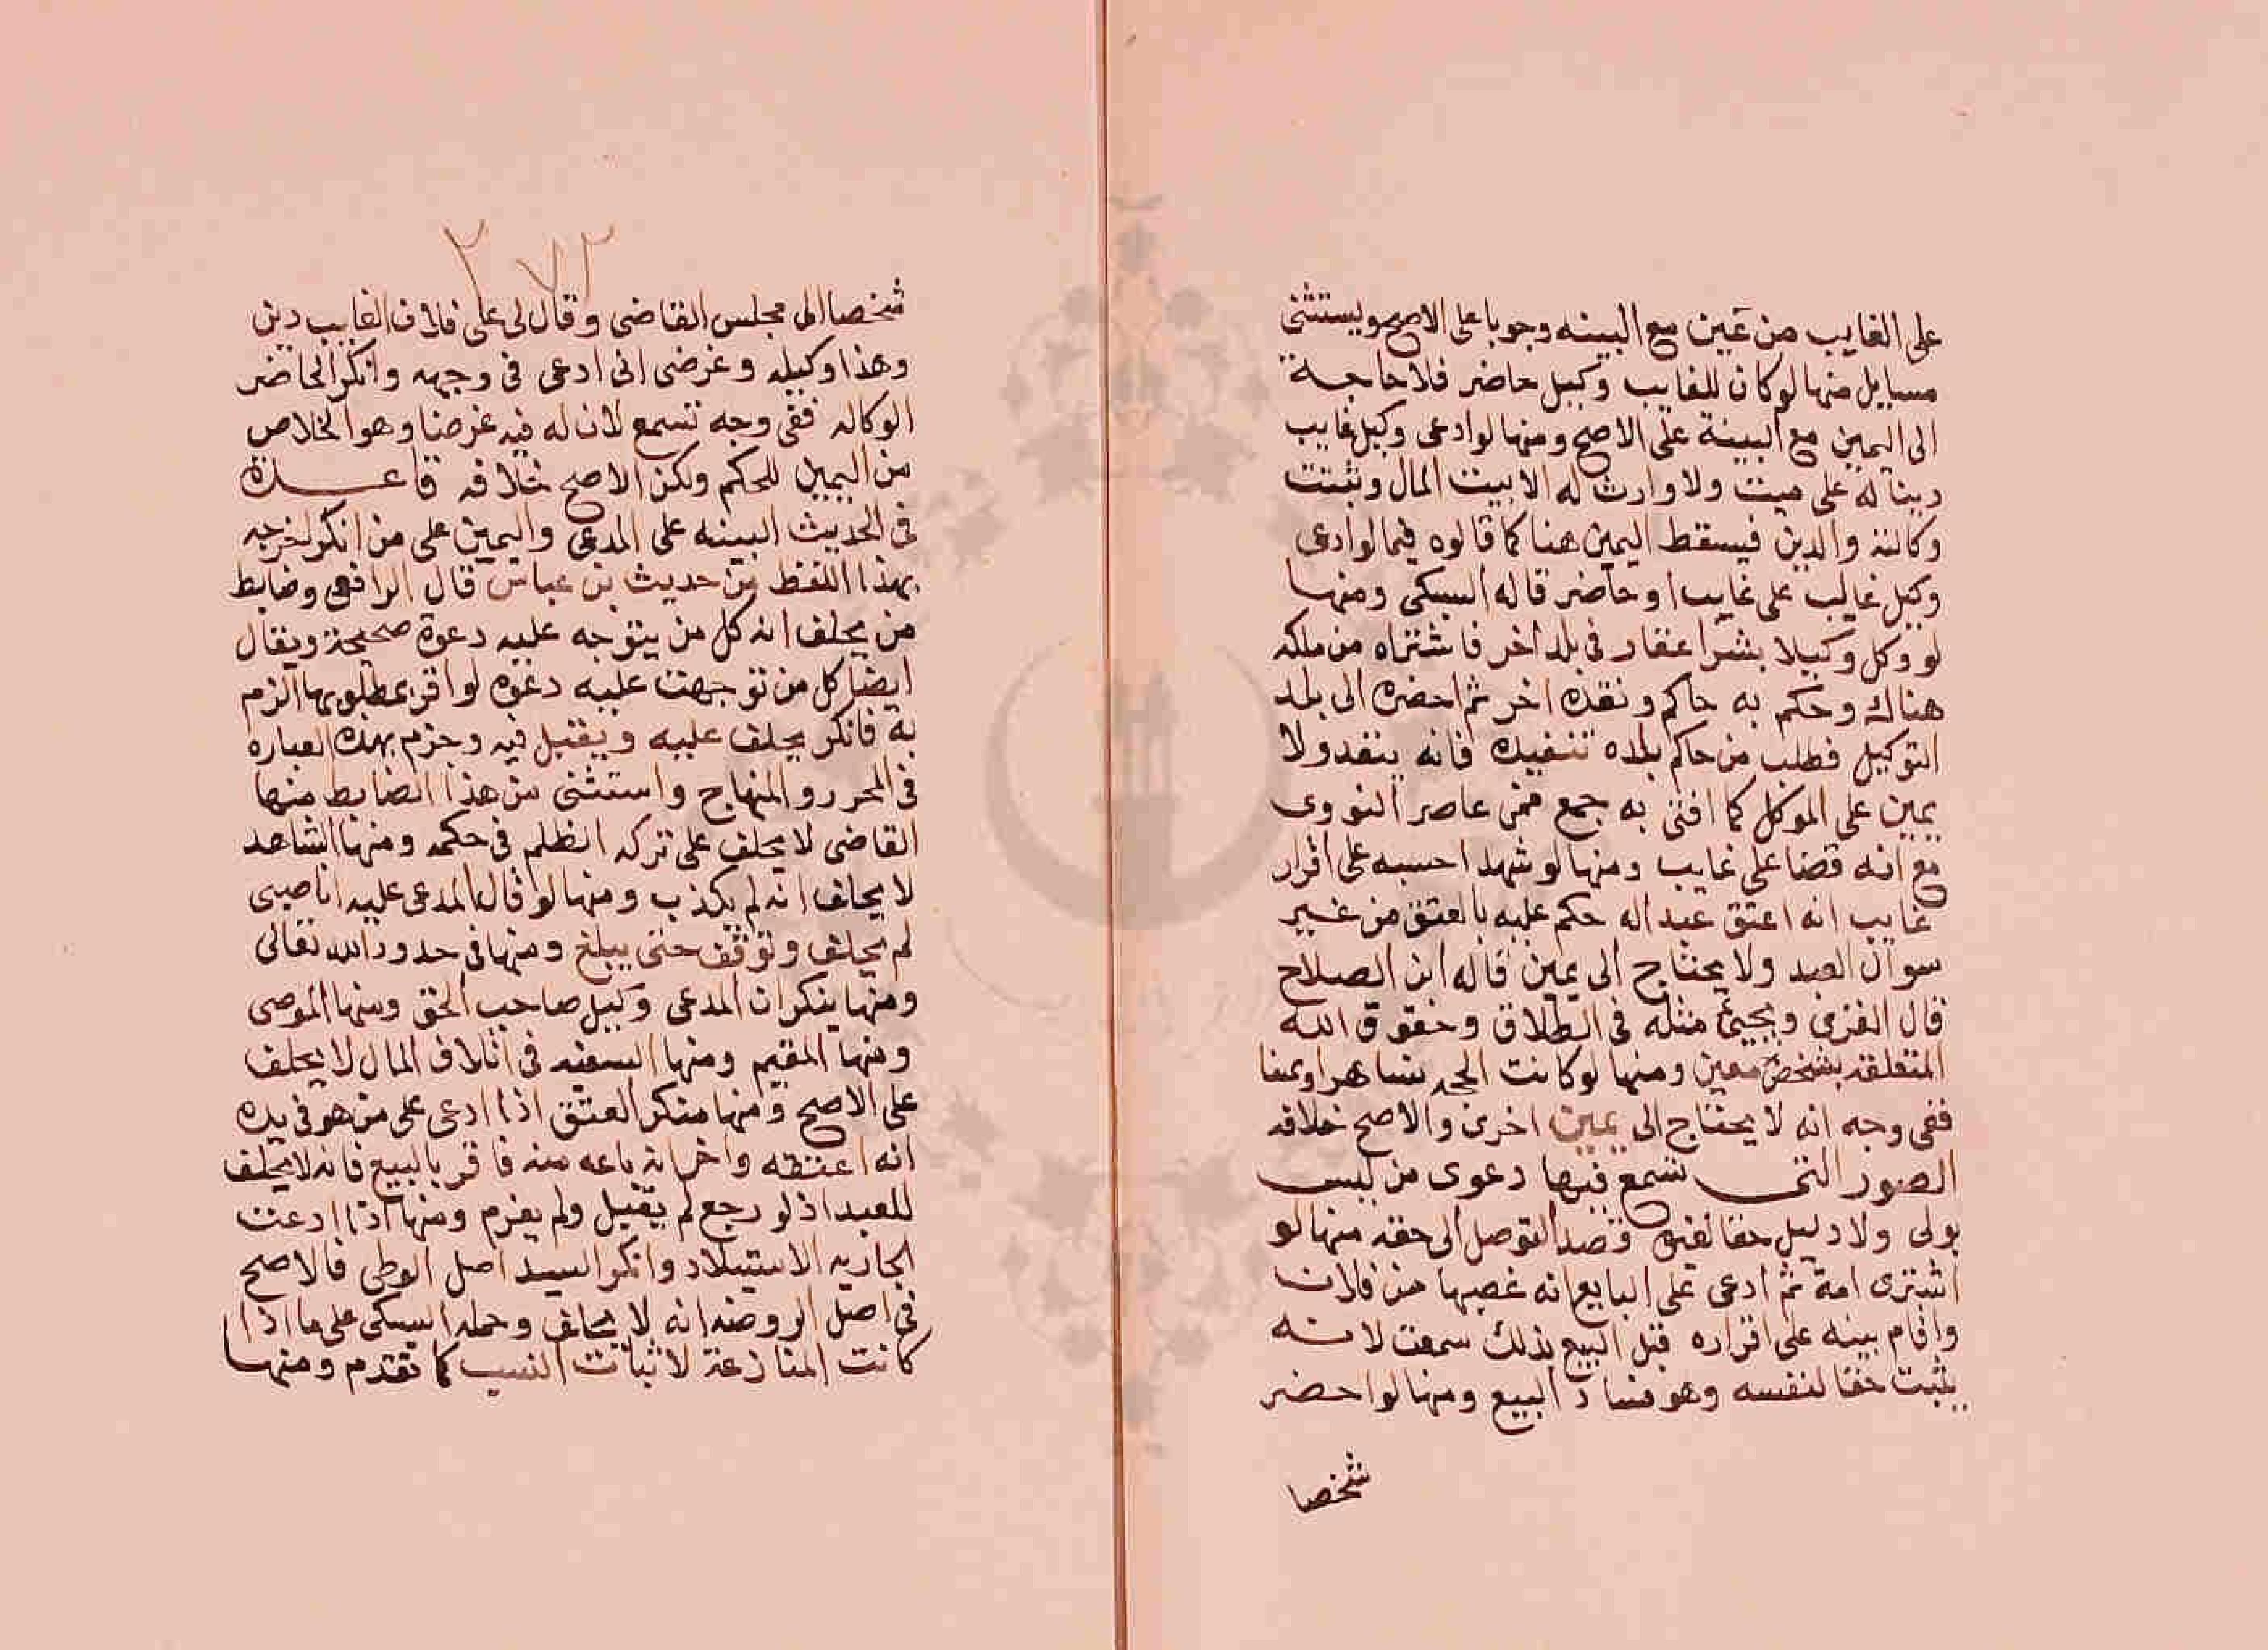 على الغايب من عين مع البينه وجوبا على الاصح ويستثنى
مسايل منها لو كان للغايب وكيل حاضر فلا حاجة
الى اليمين مع البينة على الاصح ومنها لو ادعى وكيل غايب
دينا له على ميت ولا وارث له الا بيت المال وثبتت
وكالته والدين فيسقط اليمين هنا كما قالوه فيما لو ادعى
وكيل غايب على غايب او حاضر قاله السبكى ومنها
لو وكل وكيلا بشرا عقار فى بلد اخر فاشتراه من ملكه
هناك وحكم به حاكم ونفذه اخر ثم احضره الى بلد
التوكيل فطلب من حاكم بلده تنفيذه فانه ينفذ ولا
يمين على الموكل كما افتى به جمع ممن عاصر النووى
مع انه قضا على غايب ومنها لو شهدا حسبه على اقرار
غايب انه اعتق عبدا له حكم عليه بالعتق من غير
سوال العبد ولا يحتاج الى يمين قاله ابن الصلاح
قال الغزى ويجيئ مثله فى الطلاق وحقوق الله
المتعلقه بشخص معين ومنها لو كانت الحجه شاهدا ويمينا
ففى وجه انه لا يحتاج الى يمين اخرى والاصح خلافه
الصور التى تسمع فيها دعوى من ليس
بولى ولا دليل حقا لغيره قصد التوصل الى حقه منها لو
اشترى امة ثم ادعى على البايع انه غصبها من فلان
واقام بينه على اقراره قبل البيع بذلك سمعت لانه
يثبت حقا لنفسه وهو فساد البيع ومنها لو احضر
شخصا
٢٧٢
شخصا الى مجلس القاضى وقال لى على فلان الغايب دين
وهذا وكيله وغرضى انى ادعى فى وجهه وانكر الحاضر
الوكاله ففى وجه تسمع لان له فيه غرضا وهو الخلاص
من اليمين للحكم ولكن الاصح خلافه قاعدة
فى الحديث البينه على المدعى واليمين على من انكر اخرجه
بهذا اللفظ من حديث بن عباس قال الرافعى وضابط
من يحلف انه كل من يتوجه عليه دعوة صحيحة ويقال
ايضا كل من توجهت عليه دعوه لو اقر بمطلوبها الزم
به فانكر يحلف عليه ويقبل فيه وجزم بهذه العباره
فى المحرر والمنهاج واستثنى من هذا الضابط منها
القاضى لا يحلف على تركه الظلم فى حكمه ومنها الشاهد
لا يحلف انه لم يكذب ومنها لو قال المدعى عليه انا صبى
لم يحلف وتوقف حتى يبلغ ومنها فى حدود الله تعالى
ومنها ينكر ان المدعى وكيل صاحب الحق ومنها الموصى
ومنها المقيم ومنها السفيه فى اتلاف المال لا يحلف
على الاصح ومنها منكر العتق اذا ادعى على من هو فى يده
انه اعتقه واخر انه باعه منه فاقر بالبيع فانه لا يحلف
للعبد اذ لو رجع لم يقبل ولم يغرم ومنها اذا ادعت
الجاريه الاستيلاد وانكر السيد اصل الوطى فالاصح
فى اصل الروضه انه لا يحلف وحمله السبكى على ما اذا
كانت المنازعة لا ثبات النسب كما تقدم ومنها